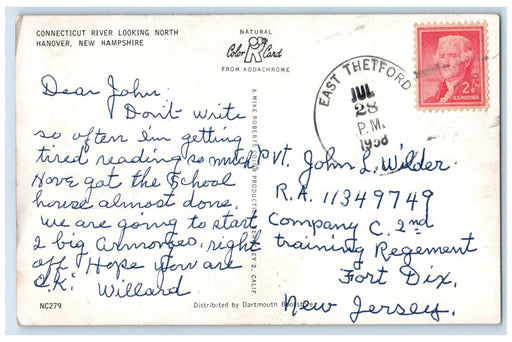 CONNECTICUT RIVER LOOKING NORTH
HANOVER, NEW HAMPSHIRE
NATURAL
Color Card
FROM KODACHROME
EAST THETFORD
JUL
28
P.M.
1958
2¢
U.S. POSTAGE
Dear John.
Don't write
so often I'm getting
tired reading so much
Have got the School
house almost done.
we are going to start
2 big Armories, right
off. Hope you are
O.K. Willard
A MIKE ROBERTS COLOR PRODUCTION, BERKELEY 2, CALIF.
Pvt. John L. Wilder.
R.A. 11349749
Company C. 2nd
training Regement
Fort Dix,
New Jersey.
NC279
Distributed by Dartmouth Bookstore